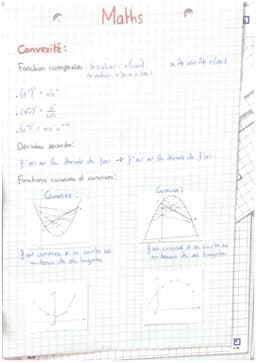 Maths
Convexité :
Fonction composée :
• (eᵘ)' = u'eᵘ
• (√u)' = u'/2√u
• (uⁿ)' = nu'uⁿ⁻¹
Dérivée seconde :
f'(x) est la dérivée de f(x) → f''(x) est la dérivée de f'(x).
Fonctions convexes et concaves :
Convexe : Concave :
f est convexe si sa courbe est f est concave si sa courbe est
au-dessus de ses tangentes en-dessous de ses tangentes